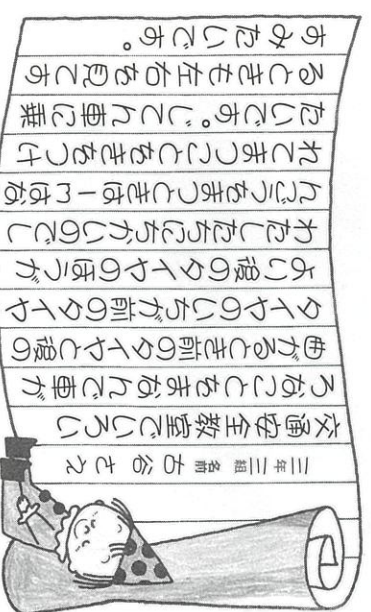 三年三組 名前 古谷さえ
交通安全教室でいろい
ろなことをまなんで車が
曲がるとき前のタイヤと後の
タイヤのいちが前のタイヤ
より後のタイヤのほうが
わたしたちにちかいのでし
んごうをまつときは一mはな
れてまつことをきをつけ
たいです。じてん車に乗
るときも左右を見てす
すみたいです。